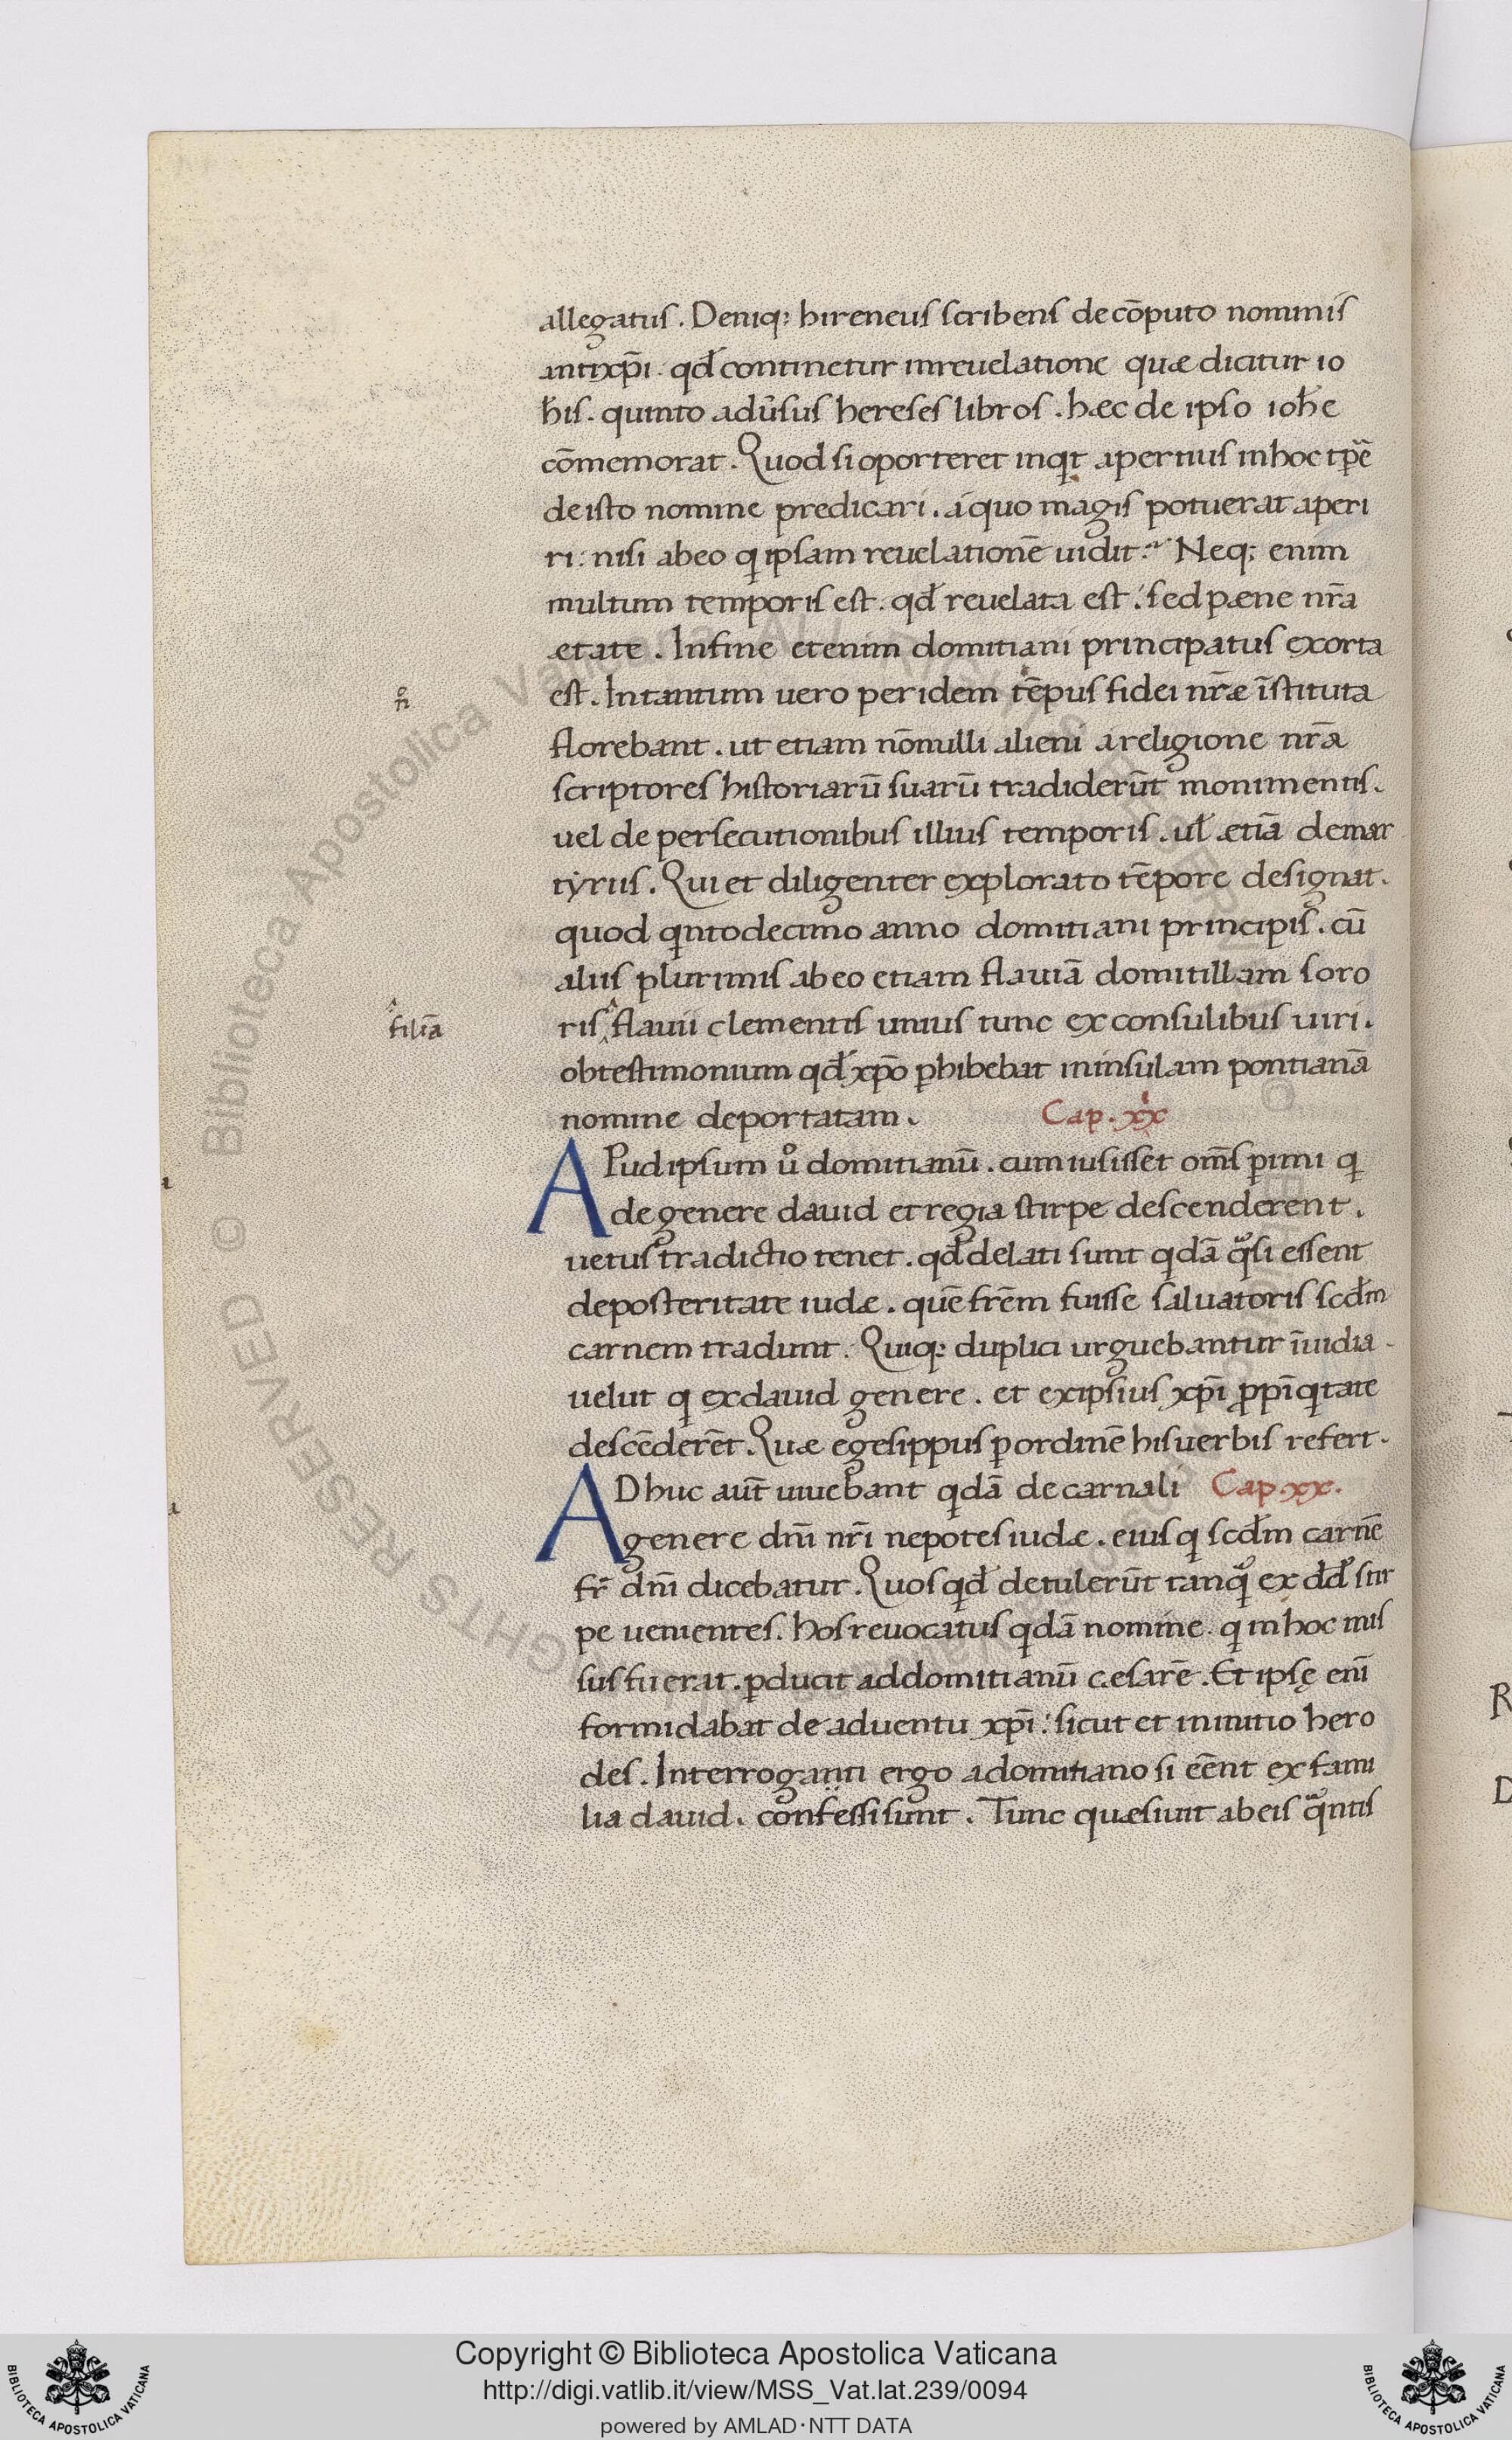 allegatus. Deniq; hireneus scribens de cōputo nominis
antixp̄i. qđ continetur in reuelatione quæ dicitur io
ħis. quinto adūsus hereses libros. hæc de ipso ioħe
cōmemorat. Quod si oporteret inqͥt apertius in hoc tp̄e
de isto nomine predicari. a quo magis potuerat aperi
ri: nisi ab eo qͥ ipsam reuelationē uidit. Neq; enim
multum temporis est. qđ reuelata est. sed pæne nr̄a
ætate. In fine etenim domitiani principatus exorta
est. In tantum uero per idem tēpus fidei nr̄æ īstituta
florebant. ut etiam nōnulli alieni a religione nr̄a
scriptores historiarū suarū tradiderūt monimentis.
uel de persecutionibus illius temporis. uł ætiā de mar
tyriis. Qui et diligenter explorato tēpore designat.
quod qͥntodecimo anno domitiani principis. cū
aliis plurimis ab eo etiam flauiā domitillam soro
filiā
ris flauii clementis unius tunc ex consulibus uiri.
ob testimonium qđ xp̄o ꝑhibebat in insulam pontianā
nomine deportatam. Cap. xix
APud ipsum ůo domitianū. cum iusisset om̄s ꝑimi qͥ
de genere dauid et regia stirpe descenderent.
uetus tradictio tenet. qđ delati sunt qͥdā qͣsi essent
de posteritate iudæ. quē frēm fuisse saluatoris scđm
carnem tradunt. Quiq; duplici urguebantur īuidia.
uelut qͥ ex dauid genere. et ex ipsius xp̄i ꝓpīqͥtate
descēderēt. Quæ egesippus ꝑ ordinē his uerbis refert.
ADhuc aūt uiuebant qͥdā de carnali Cap. xx.
genere dn̄i nr̄i nepotes iudæ. eius qͥ scđm carnē
fr̄ dn̄i dicebatur. Quos qͥđ detulerūt tanqͣ ex dđ stir
pe uenientes. hos reuocatus qͥdā nomine. qͥ in hoc mis
sus fuerat. ꝑducit ad domitianū cæsarē. Et ipsę enī
formidabat de aduentu xp̄i: sicut et in initio hero
des. Interroganti ergo a domitiano si eēnt ex fami
lia dauid. confessi sunt. Tunc quæsiuit ab eis qͣntis
Copyright © Biblioteca Apostolica Vaticana
http://digi.vatlib.it/view/MSS_Vat.lat.239/0094
powered by AMLAD·NTT DATA